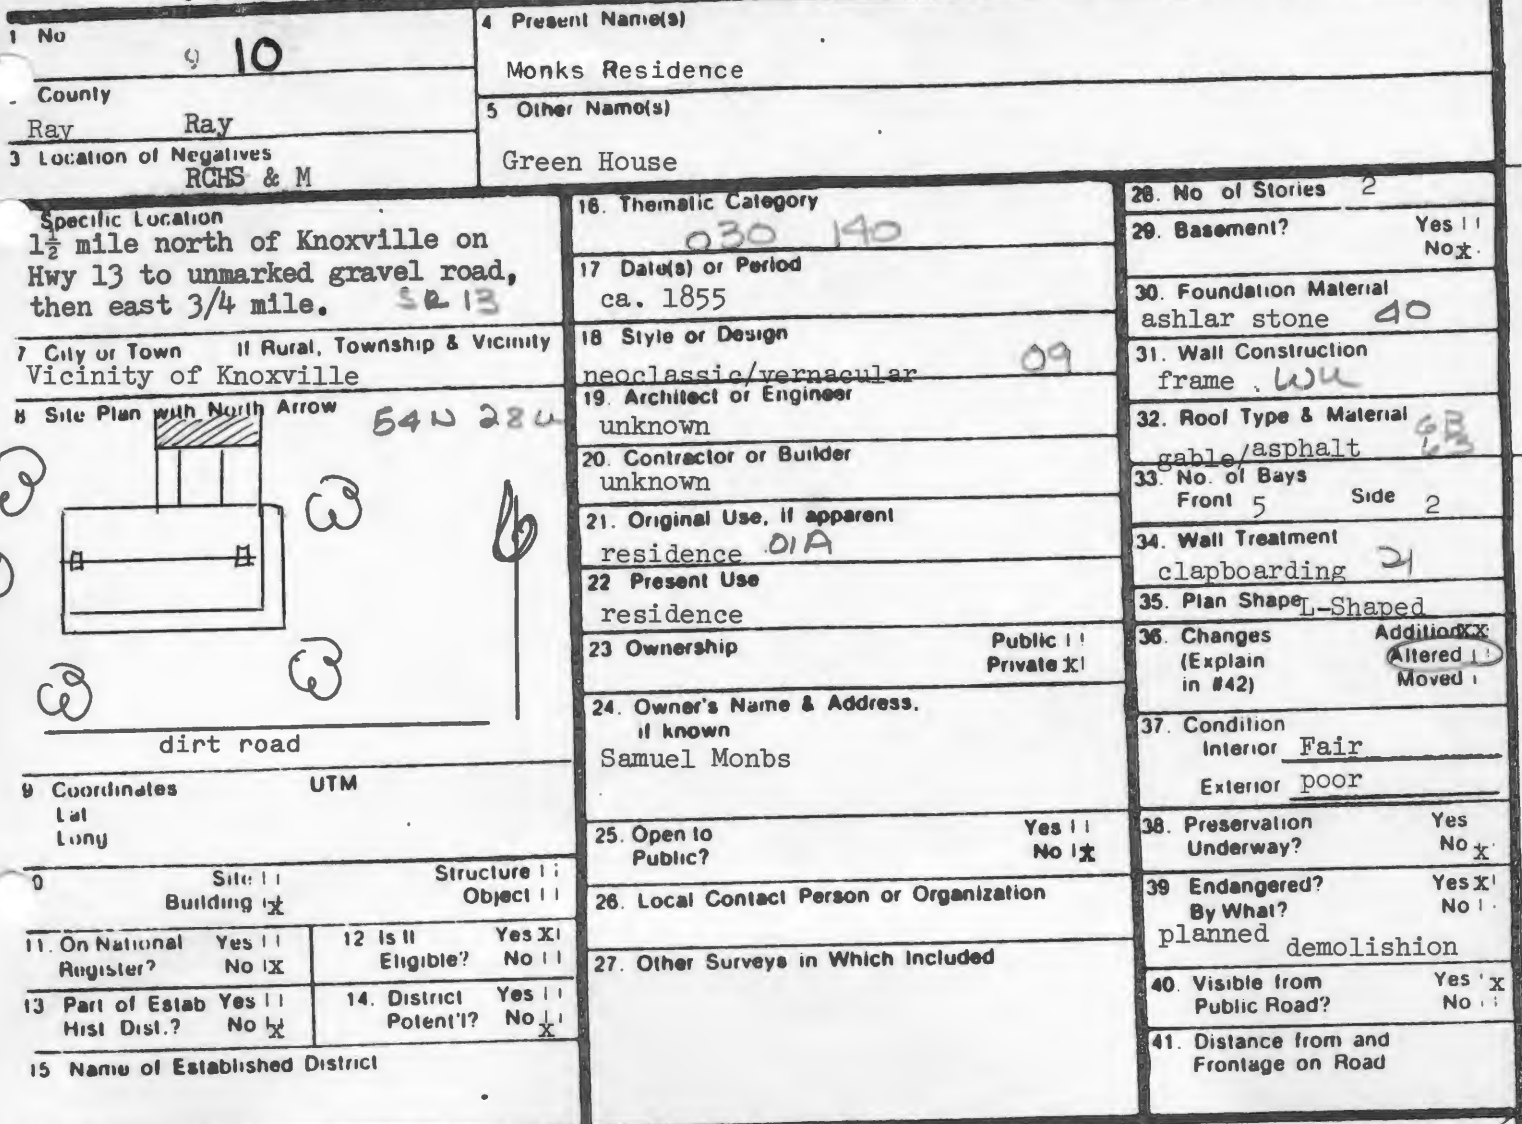 1 No
10
County
Ray Ray
3 Location of Negatives
RCHS & M
4 Present Name(s)
Monks Residence
5 Other Name(s)
Green House
Specific Location
1½ mile north of Knoxville on
Hwy 13 to unmarked gravel road,
then east 3/4 mile. SR 13
7 City or Town If Rural, Township & Vicinity
Vicinity of Knoxville
8 Site Plan with North Arrow
54N 28W
dirt road
9 Coordinates UTM
Lat
Long
0 Site Structure
Building x Object
11. On National Yes
Register? No X
12 Is It Yes X
Eligible? No
13 Part of Estab Yes
Hist Dist.? No x
14. District Yes
Potent'l? No x
15 Name of Established District
16. Thematic Category
030 140
17 Date(s) or Period
ca. 1855
18 Style or Design
neoclassic/vernacular 09
19. Architect or Engineer
unknown
20. Contractor or Builder
unknown
21. Original Use, if apparent
residence 01A
22 Present Use
residence
23 Ownership Public
Private x
24. Owner's Name & Address,
if known
Samuel Monbs
25. Open to Yes
Public? No x
26. Local Contact Person or Organization
27. Other Surveys in Which Included
28. No of Stories 2
29. Basement? Yes
No x
30. Foundation Material
ashlar stone 40
31. Wall Construction
frame
32. Roof Type & Material
gable/asphalt
33. No. of Bays
Front 5 Side 2
34. Wall Treatment
clapboarding 21
35. Plan Shape L-Shaped
36. Changes Addition XX
(Explain Altered
in #42) Moved
37. Condition
Interior Fair
Exterior poor
38. Preservation Yes
Underway? No x
39 Endangered? Yes X
By What? No
planned demolishion
40. Visible from Yes x
Public Road? No
41. Distance from and
Frontage on Road